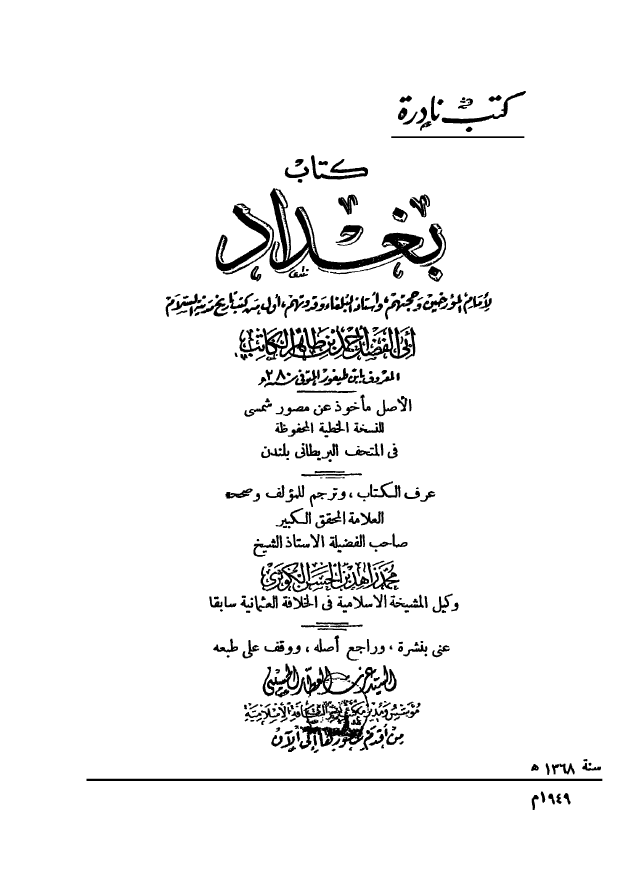 كتب نادرة
كتاب
بغداد
لإمام المؤرخين وحجتهم، وأستاذ البلغاء وقدوتهم، أول من كتب تاريخ مدينة السلام
أبي الفضل أحمد بن طاهر الكاتب
المعروف بابن طيفور المتوفى سنة ٢٨٠ هـ
الأصل مأخوذ عن مصور شمسى
للنسخة الخطية المحفوظة
فى المتحف البريطانى بلندن
عرف الكتاب، وترجم للمؤلف وصححه
العلامة المحقق الكبير
صاحب الفضيلة الاستاذ الشيخ
محمد زاهد بن الحسن الكوثري
وكيل المشيخة الاسلامية فى الخلافة العثمانية سابقا
عنى بنشرة، وراجع أصله، ووقف على طبعه
السيد عزت العطار الحسيني
مؤسس ومدير مكتب نشر الثقافة الإسلامية
من أقدم عصورها إلى الآن
سنة ١٣٦٨ هـ
١٩٤٩م